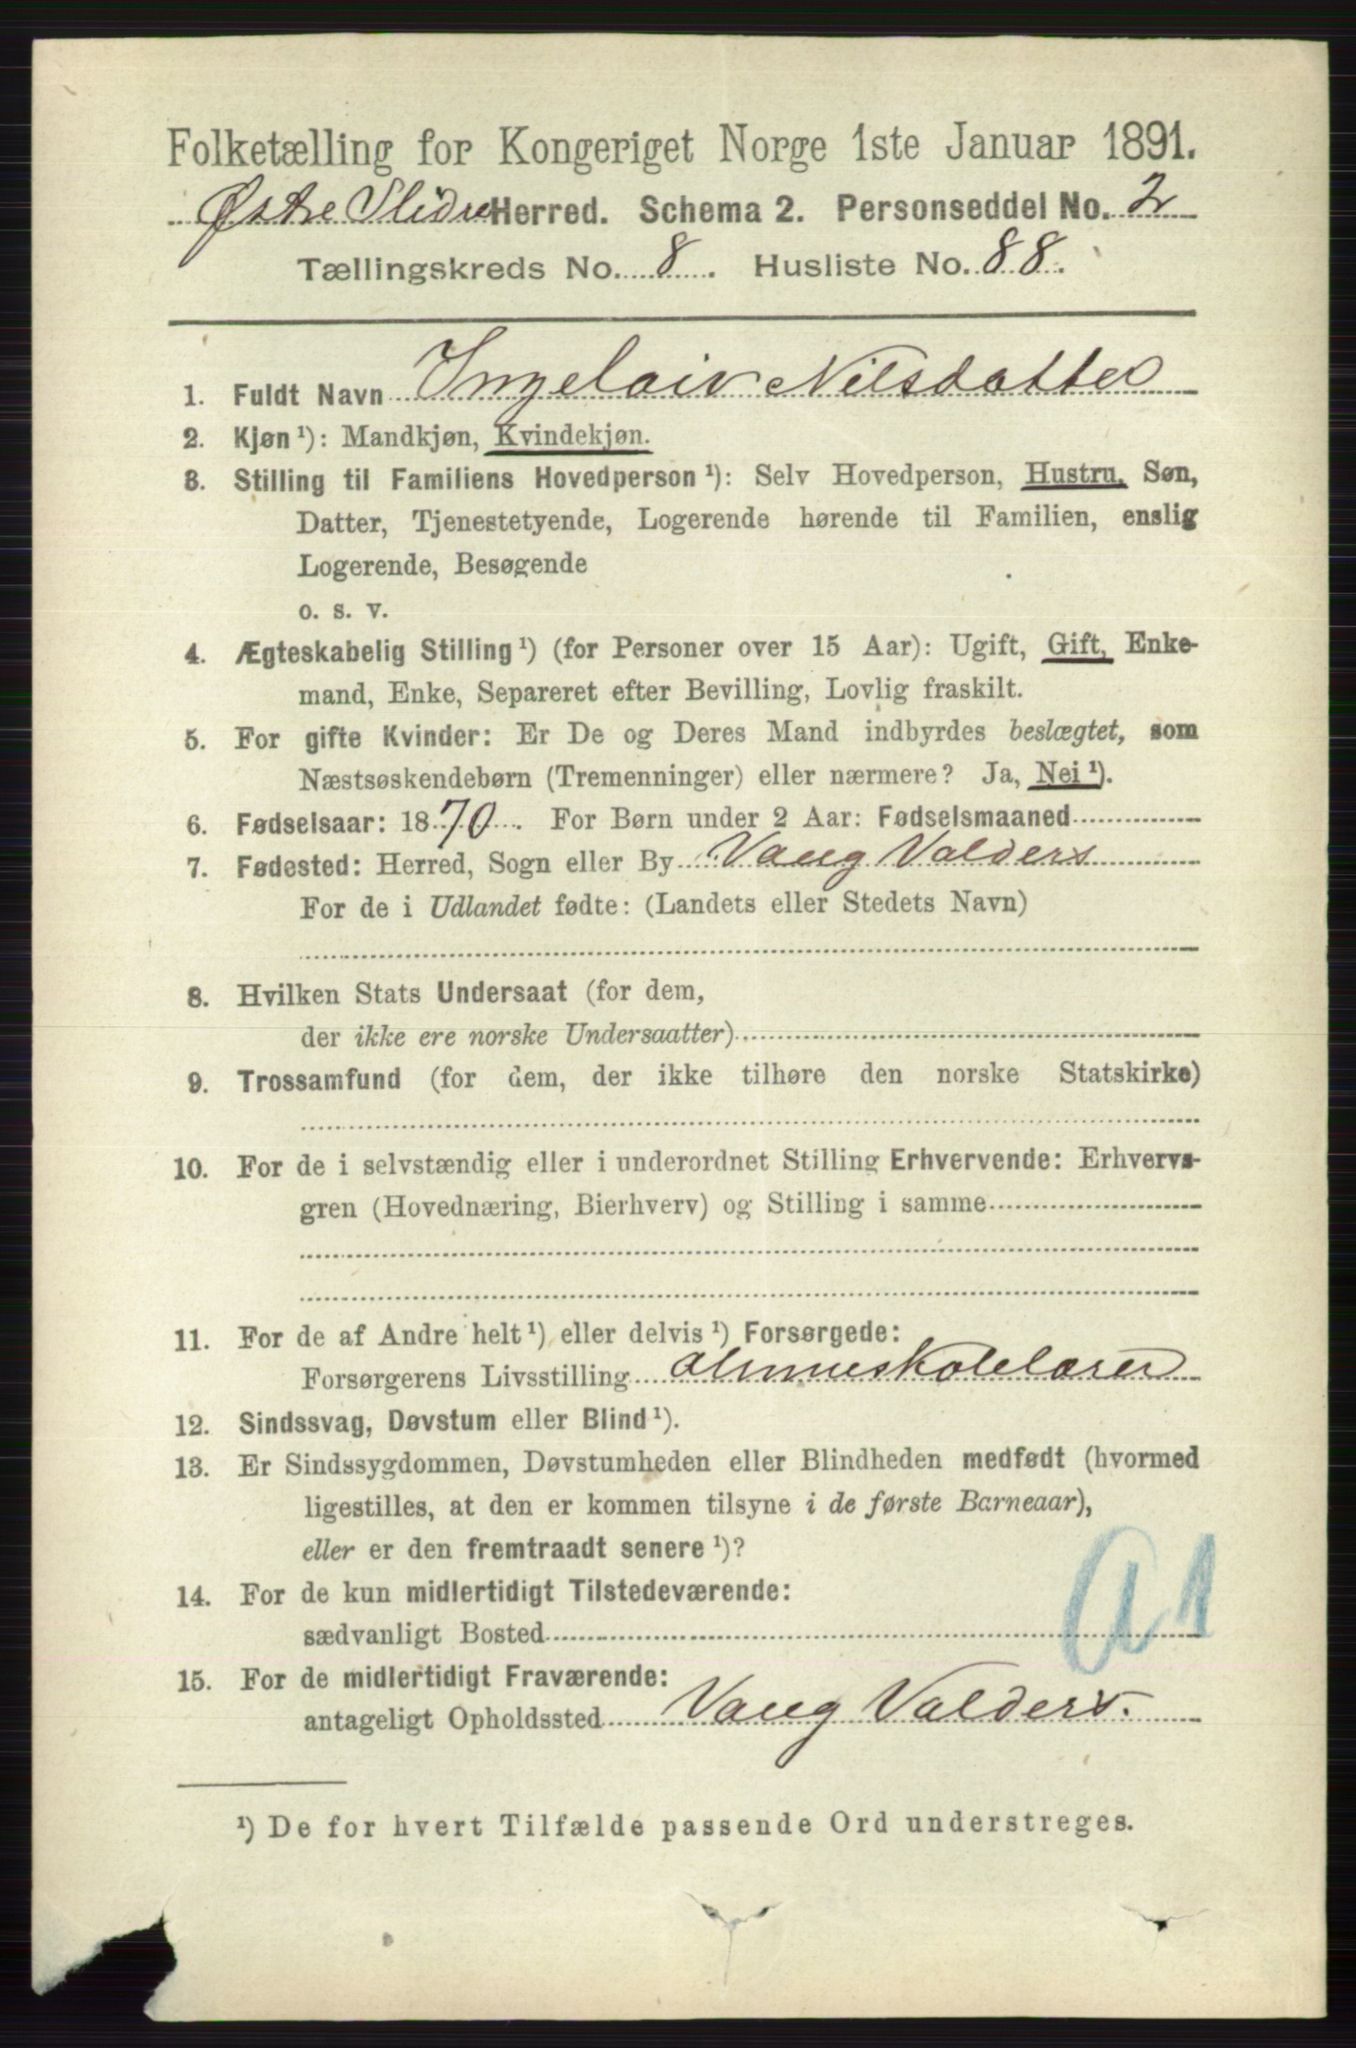 Folketælling for Kongeriget Norge 1ste Januar 1891.
Østre Slidre Herred. Schema 2. Personseddel No. 2
Tællingskreds No. 8. Husliste No. 88.
1. Fuldt Navn Ingeloiv Nilsdatter
2. Kjøn ¹): Mandkjøn, Kvindekjøn.
3. Stilling til Familiens Hovedperson ¹): Selv Hovedperson, Hustru, Søn,
Datter, Tjenestetyende, Logerende hørende til Familien, enslig
Logerende, Besøgende
o. s. v.
4. Ægteskabelig Stilling ¹) (for Personer over 15 Aar): Ugift, Gift, Enke-
mand, Enke, Separeret efter Bevilling, Lovlig fraskilt.
5. For gifte Kvinder: Er De og Deres Mand indbyrdes beslægtet, som
Næstsøskendebørn (Tremenninger) eller nærmere? Ja, Nei ¹).
6. Fødselsaar: 1870. For Børn under 2 Aar: Fødselsmaaned
7. Fødested: Herred, Sogn eller By Vang Valders
For de i Udlandet fødte: (Landets eller Stedets Navn)
8. Hvilken Stats Undersaat (for dem,
der ikke ere norske Undersaatter)
9. Trossamfund (for dem, der ikke tilhøre den norske Statskirke)
10. For de i selvstændig eller i underordnet Stilling Erhvervende: Erhvervs-
gren (Hovednæring, Bierhverv) og Stilling i samme
11. For de af Andre helt ¹) eller delvis ¹) Forsørgede:
Forsørgerens Livsstilling Almueskolelærer
12. Sindssvag, Døvstum eller Blind ¹).
13. Er Sindssygdommen, Døvstumheden eller Blindheden medfødt (hvormed
ligestilles, at den er kommen tilsyne i de første Barneaar),
eller er den fremtraadt senere ¹)?
14. For de kun midlertidigt Tilstedeværende:
sædvanligt Bosted
a 1
15. For de midlertidigt Fraværende:
antageligt Opholdssted Vang Valders.
¹) De for hvert Tilfælde passende Ord understreges.